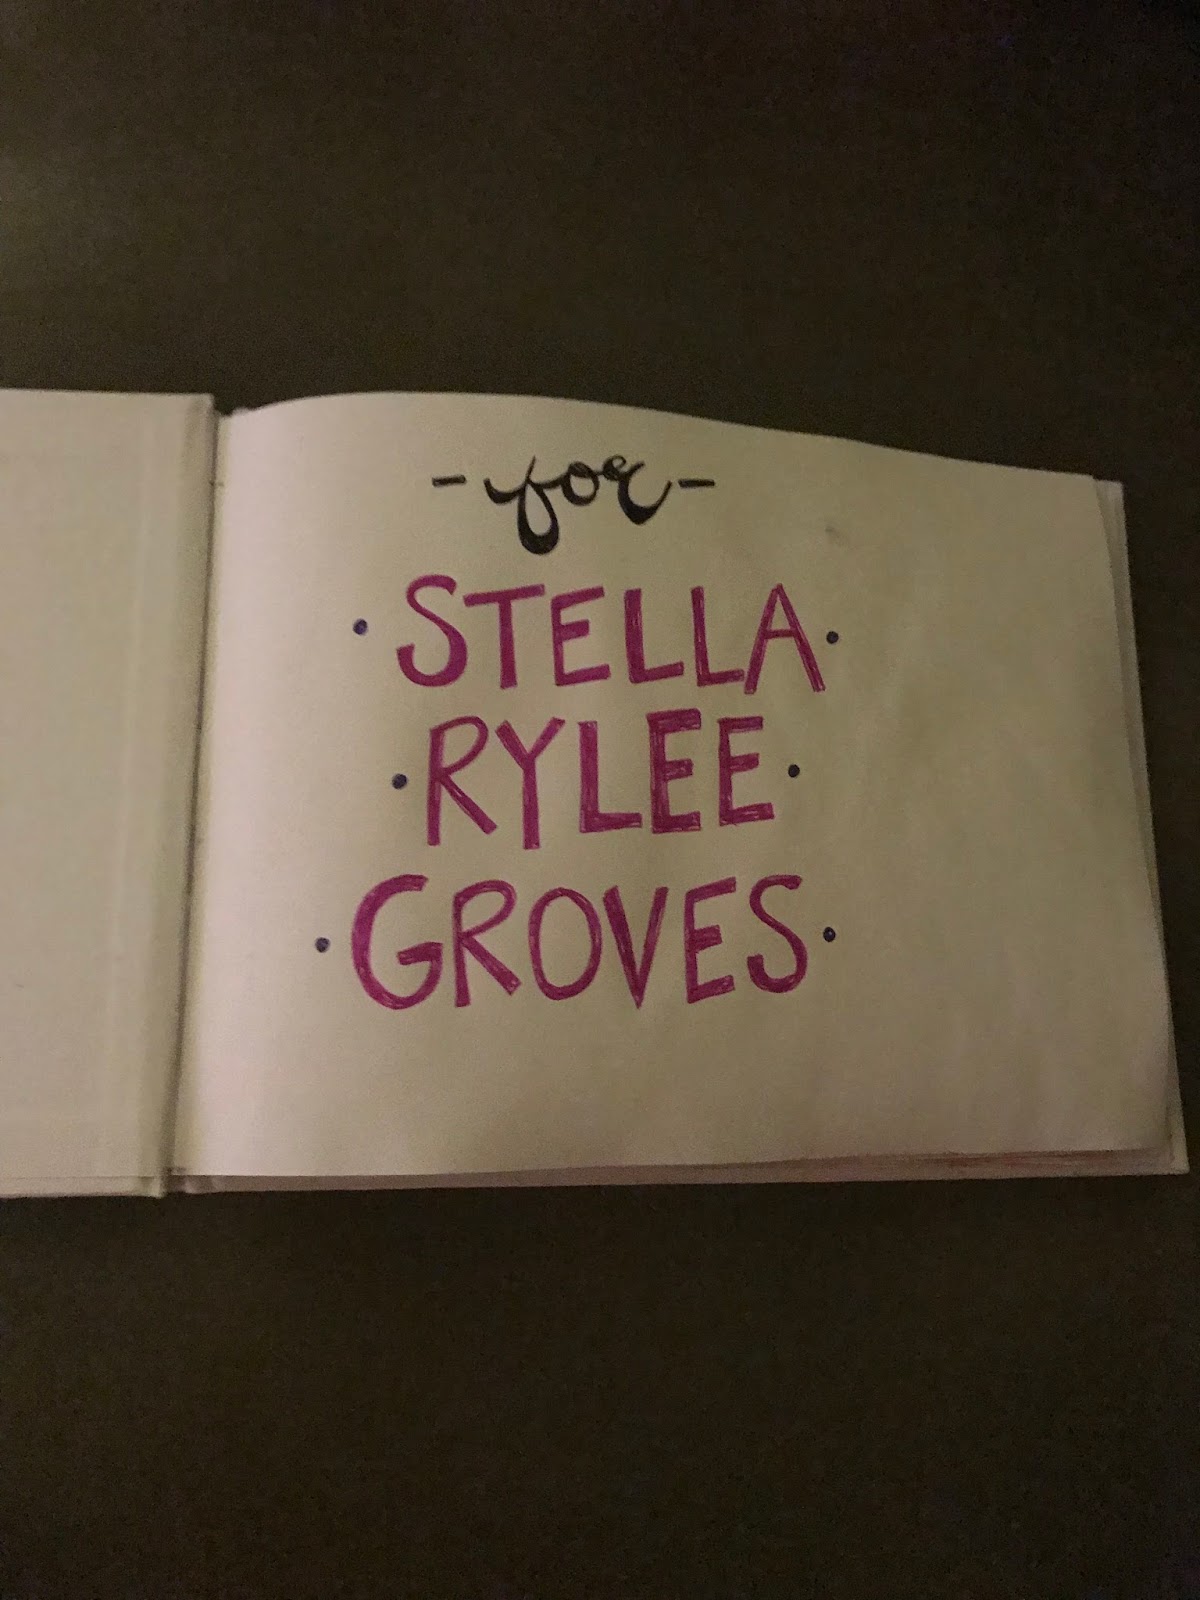 - for -
· STELLA ·
· RYLEE ·
· GROVES ·